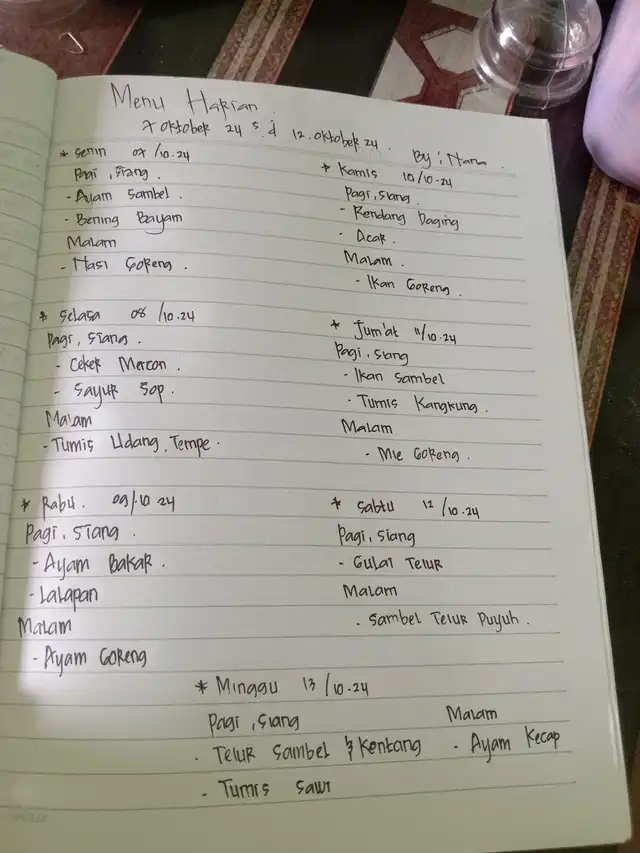 Menu Harian
7 Oktober 24 s.d 12.oktober 24.
By : Nana.
* Senin 07/10.24
Pagi, Siang.
- Ayam Sambel.
- Bening Bayam
Malam
- Nasi Goreng.
* Selasa 08/10.24
Pagi, Siang.
- Ceker Mercon.
- Sayur Sop.
Malam
- Tumis Udang, Tempe.
* Rabu. 09/10 24
Pagi, Siang.
- Ayam Bakar.
- Lalapan
Malam
- Ayam Goreng
* Kamis 10/10-24
Pagi, Siang.
- Rendang Daging
- Acar.
Malam.
- Ikan Goreng.
* Jum'at 11/10.24
Pagi, Siang
- Ikan Sambel
- Tumis Kangkung.
Malam
- Mie Goreng.
* Sabtu 12/10.24
Pagi, Siang
- Gulai Telur
Malam
. Sambel Telur Puyuh.
* Minggu 13/10-24
Pagi, Siang
- Telur Sambel & Kentang
- Tumis Sawi
Malam
- Ayam Kecap